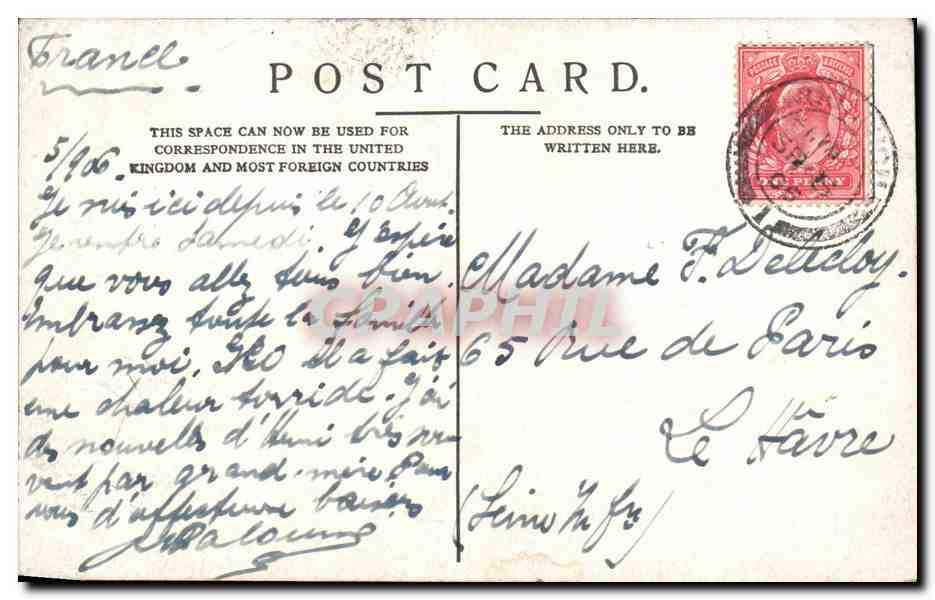 France
POST CARD.
THIS SPACE CAN NOW BE USED FOR
CORRESPONDENCE IN THE UNITED
KINGDOM AND MOST FOREIGN COUNTRIES
THE ADDRESS ONLY TO BE
WRITTEN HERE.
POSTAGE REVENUE
ONE PENNY
5/906.
Je suis ici depuis le 10 Aout.
Je rentre Samedi. J'espère
que vous allez tous bien.
Embrassez toute la famille
pour moi. Ici il a fait
une chaleur torride. J'ai
des nouvelles d' très sou
vent par grand-mère. Pour
vous d'affectueux baisers
Madame F. Delteloy.
65 Rue de Paris
Le Hâvre
(Seine Infre)
GRAPHIL